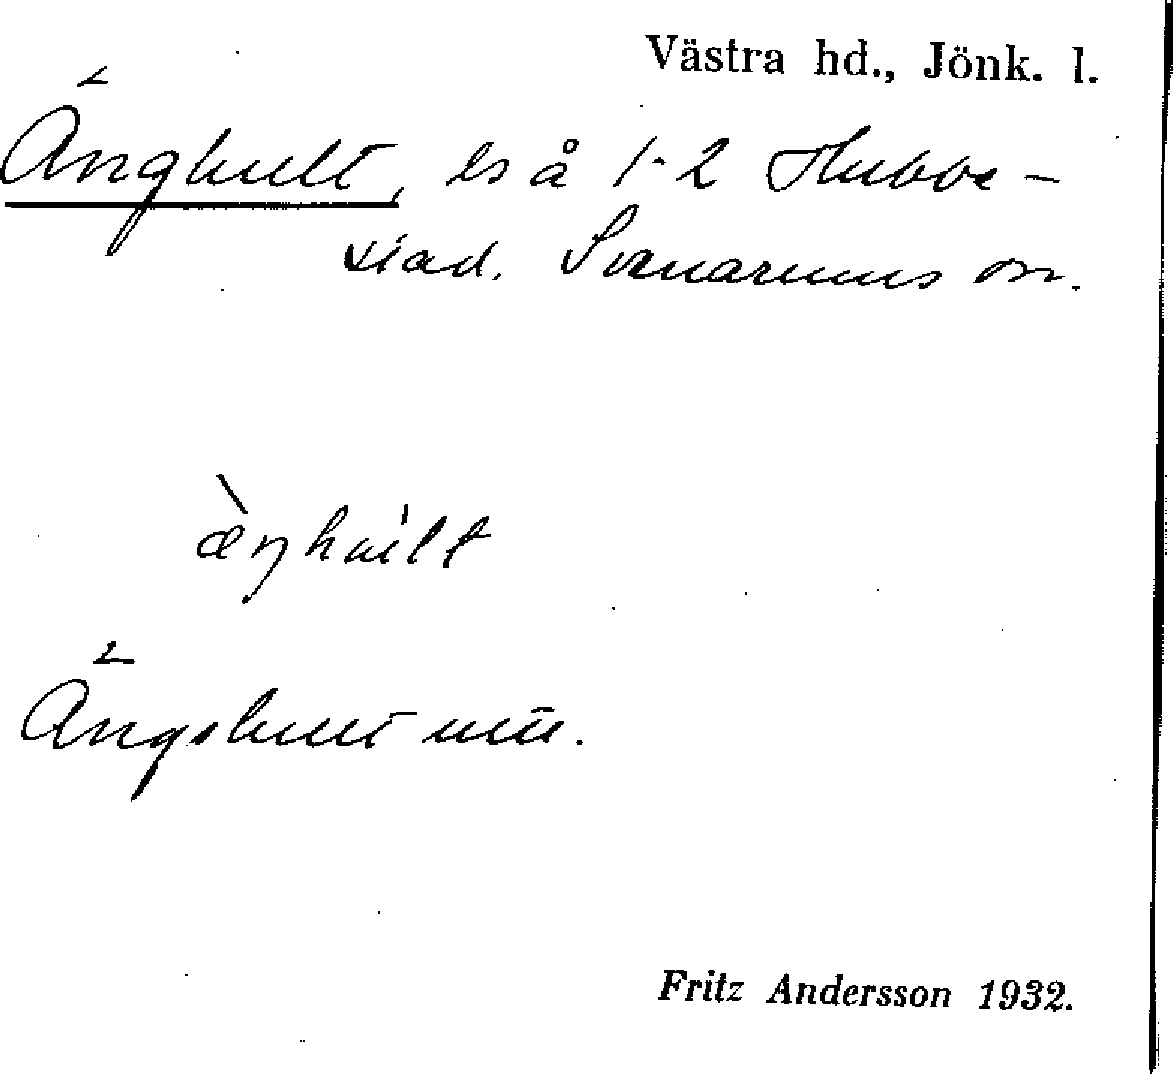 Västra hd., Jönk. l.
Änghult, ls å 1-2 Hubbe-
stad. Svenarums sn.
æ̀ŋhu̇lt
Ängshult
Fritz Andersson 1932.